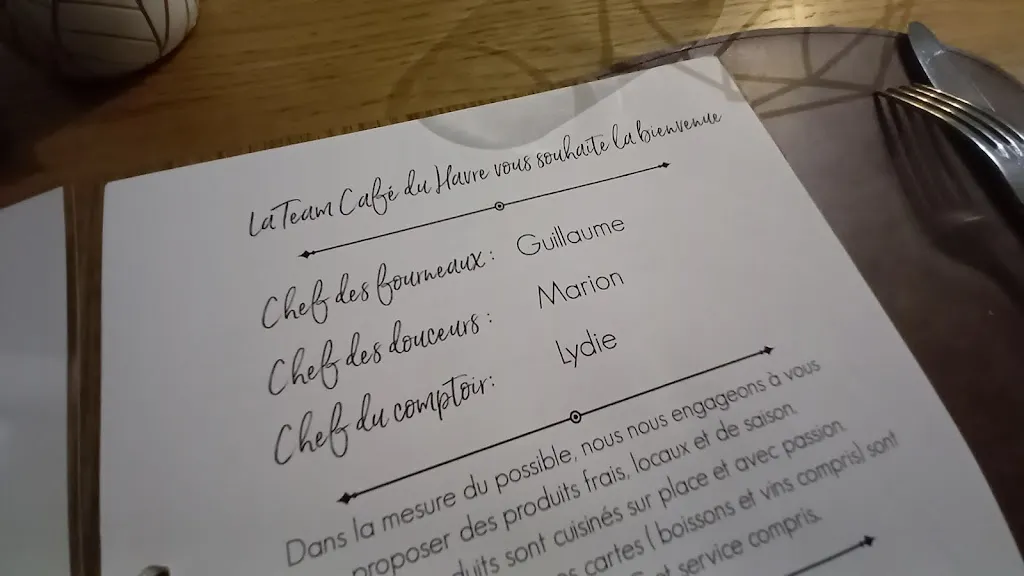 La Team Café du Havre vous souhaite la bienvenue
Chef des fourneaux : Guillaume
Chef des douceurs : Marion
Chef du comptoir: Lydie
Dans la mesure du possible, nous nous engageons à vous
proposer des produits frais, locaux et de saison.
sont cuisinés sur place et avec passion.
cartes ( boissons et vins compris) sont
et service compris.